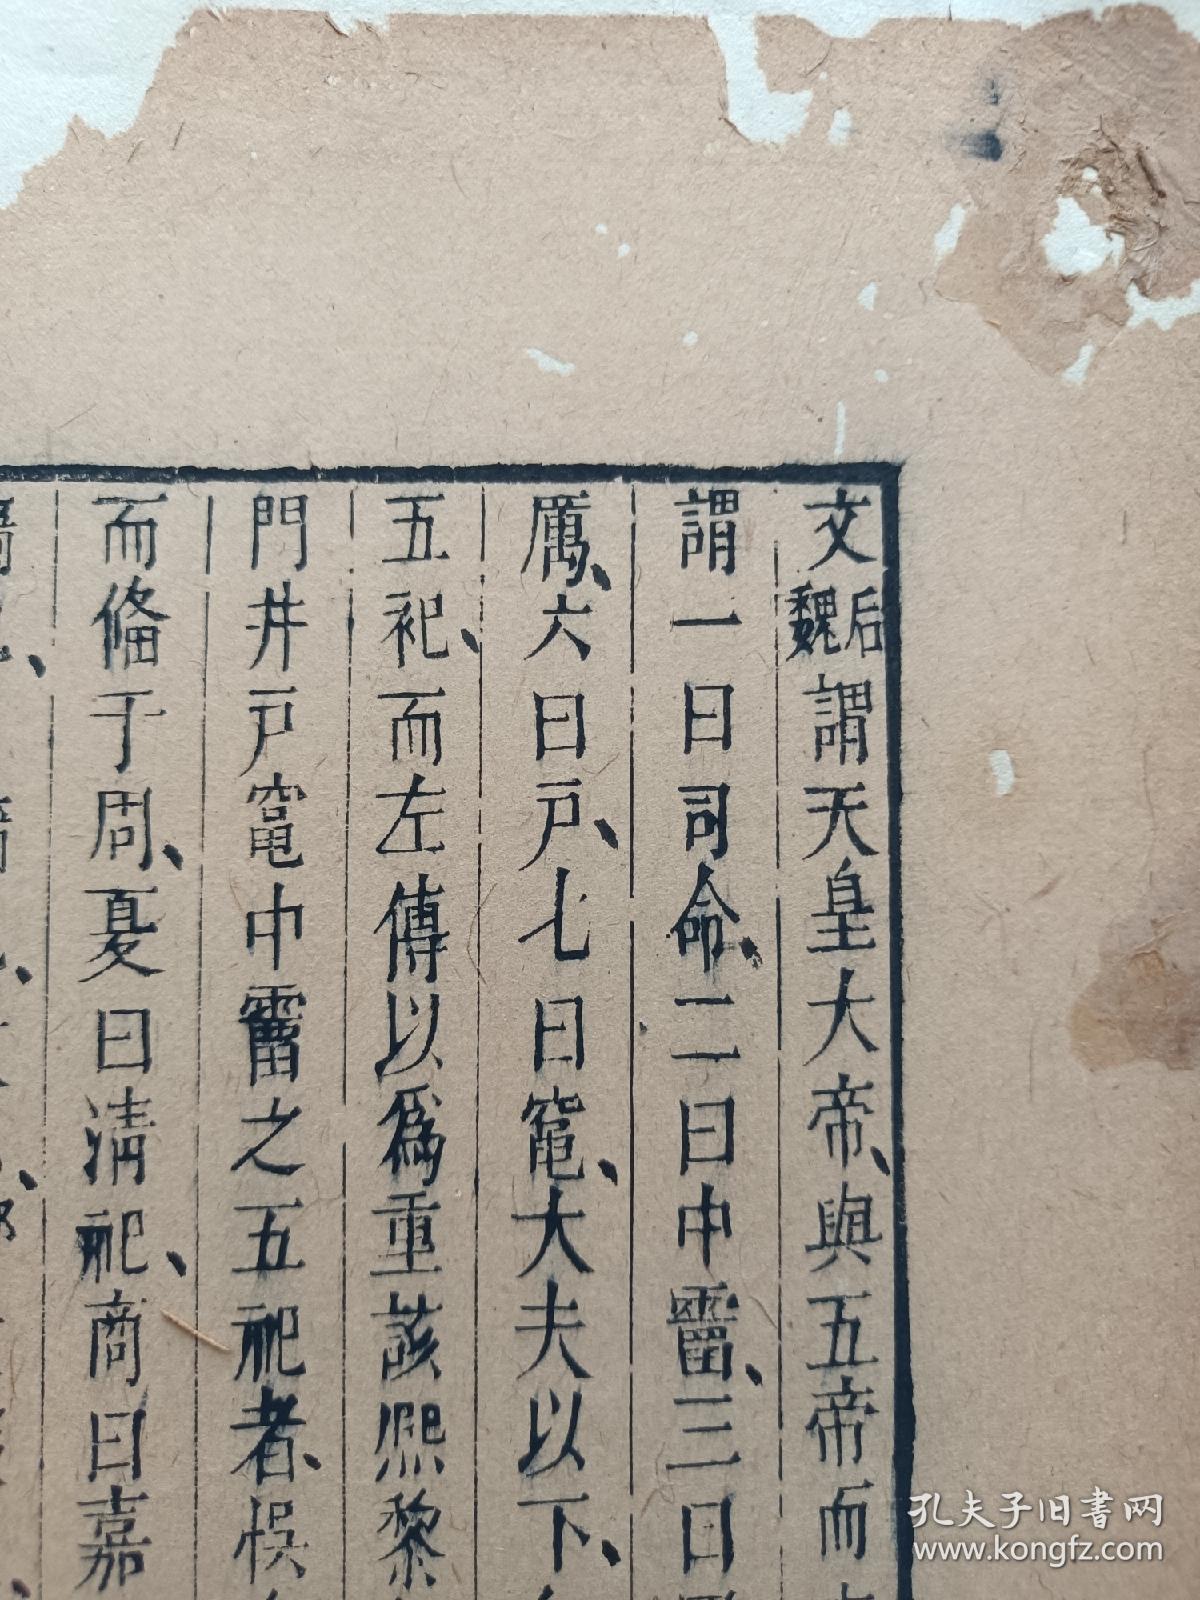 文后魏謂天皇大帝、與五帝而
謂一曰司命、二曰中霤、三曰
厲、六曰戶、七曰竈、大夫以下、
五祀、而左傳以爲重該熙黎
門井戶竈中霤之五祀者、悞
而偹于周、夏曰清祀、商曰嘉
孔夫子旧書网
www.kongfz.com